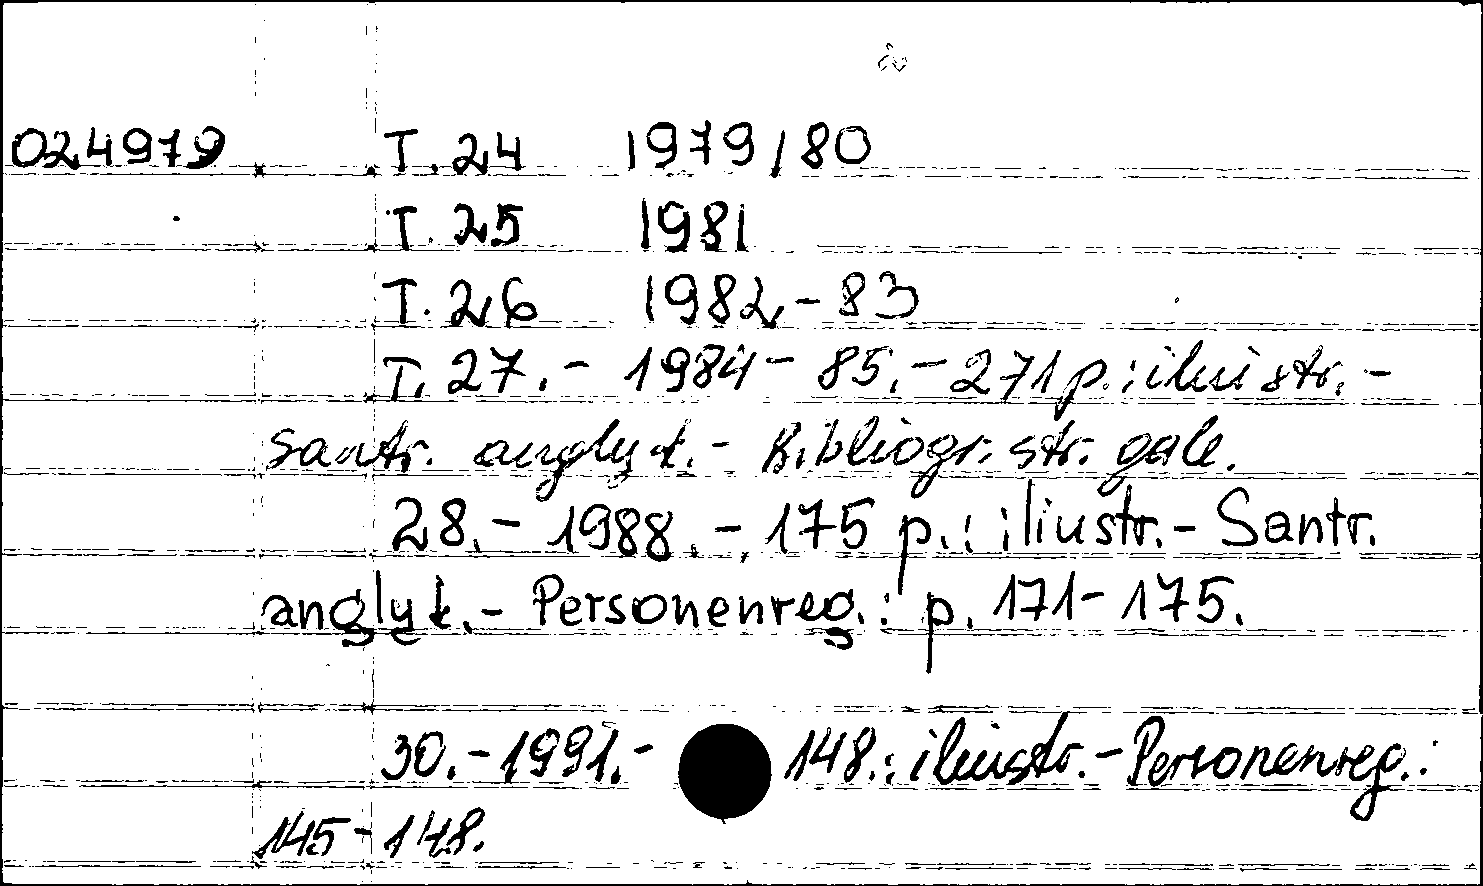 024979 T. 24 1979/80
T. 25 1981
T. 26 1982-83
T. 27.- 1984-85.- 271 p.: iliustr.-
Santr. anglų k.- Bibliogr. str. gale.
28.- 1988.-, 175 p.: iliustr.- Santr.
anglų k.- Personenreg.: p. 171-175.
30.-1991.- 148.: iliustr.-Personenreg.:
145-148.